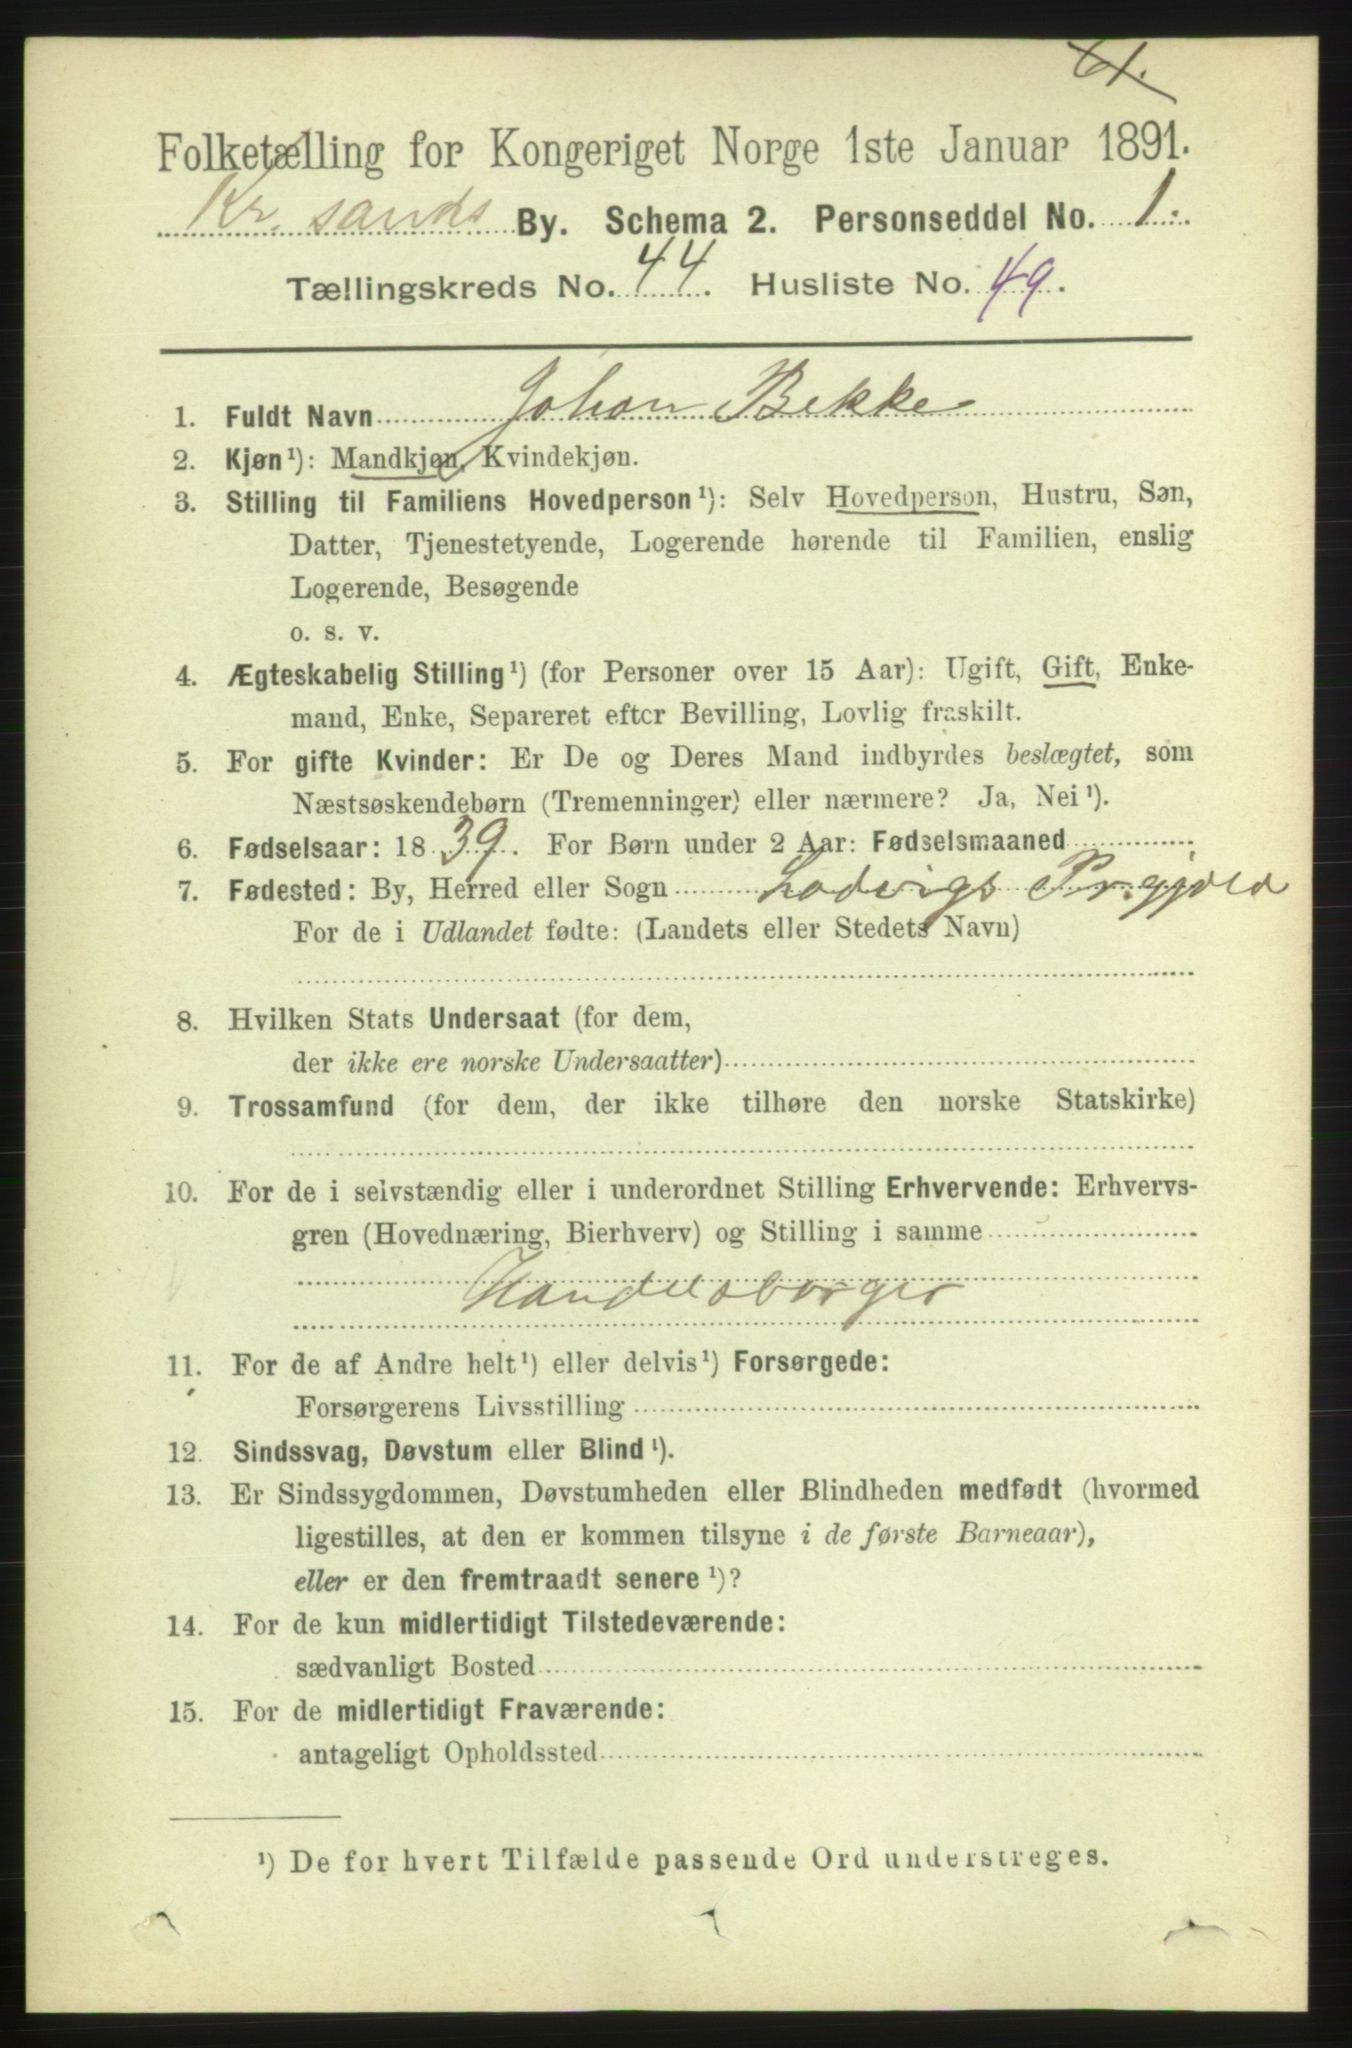 Folketælling for Kongeriget Norge 1ste Januar 1891.
Kr. sands By. Schema 2. Personseddel No. 1.
Tællingskreds No. 44. Husliste No. 49.
1. Fuldt Navn Johan Bekke
2. Kjøn¹): Mandkjøn, Kvindekjøn.
3. Stilling til Familiens Hovedperson¹): Selv Hovedperson, Hustru, Søn,
Datter, Tjenestetyende, Logerende hørende til Familien, enslig
Logerende, Besøgende
o. s. v.
4. Ægteskabelig Stilling¹) (for Personer over 15 Aar): Ugift, Gift, Enke-
mand, Enke, Separeret efter Bevilling, Lovlig fraskilt.
5. For gifte Kvinder: Er De og Deres Mand indbyrdes beslægtet, som
Næstsøskendebørn (Tremenninger) eller nærmere? Ja, Nei¹).
6. Fødselsaar: 1839. For Børn under 2 Aar: Fødselsmaaned
7. Fødested: By, Herred eller Sogn Lodvigs Pr.gjæld
For de i Udlandet fødte: (Landets eller Stedets Navn)
8. Hvilken Stats Undersaat (for dem,
der ikke ere norske Undersaatter)
9. Trossamfund (for dem, der ikke tilhøre den norske Statskirke)
10. For de i selvstændig eller i underordnet Stilling Erhvervende: Erhvervs-
gren (Hovednæring, Bierhverv) og Stilling i samme
Handelsborger
11. For de af Andre helt¹) eller delvis¹) Forsørgede:
Forsørgerens Livsstilling
12. Sindssvag, Døvstum eller Blind¹).
13. Er Sindssygdommen, Døvstumheden eller Blindheden medfødt (hvormed
ligestilles, at den er kommen tilsyne i de første Barneaar),
eller er den fremtraadt senere¹)?
14. For de kun midlertidigt Tilstedeværende:
sædvanligt Bosted
15. For de midlertidigt Fraværende:
antageligt Opholdssted
¹) De for hvert Tilfælde passende Ord understreges.